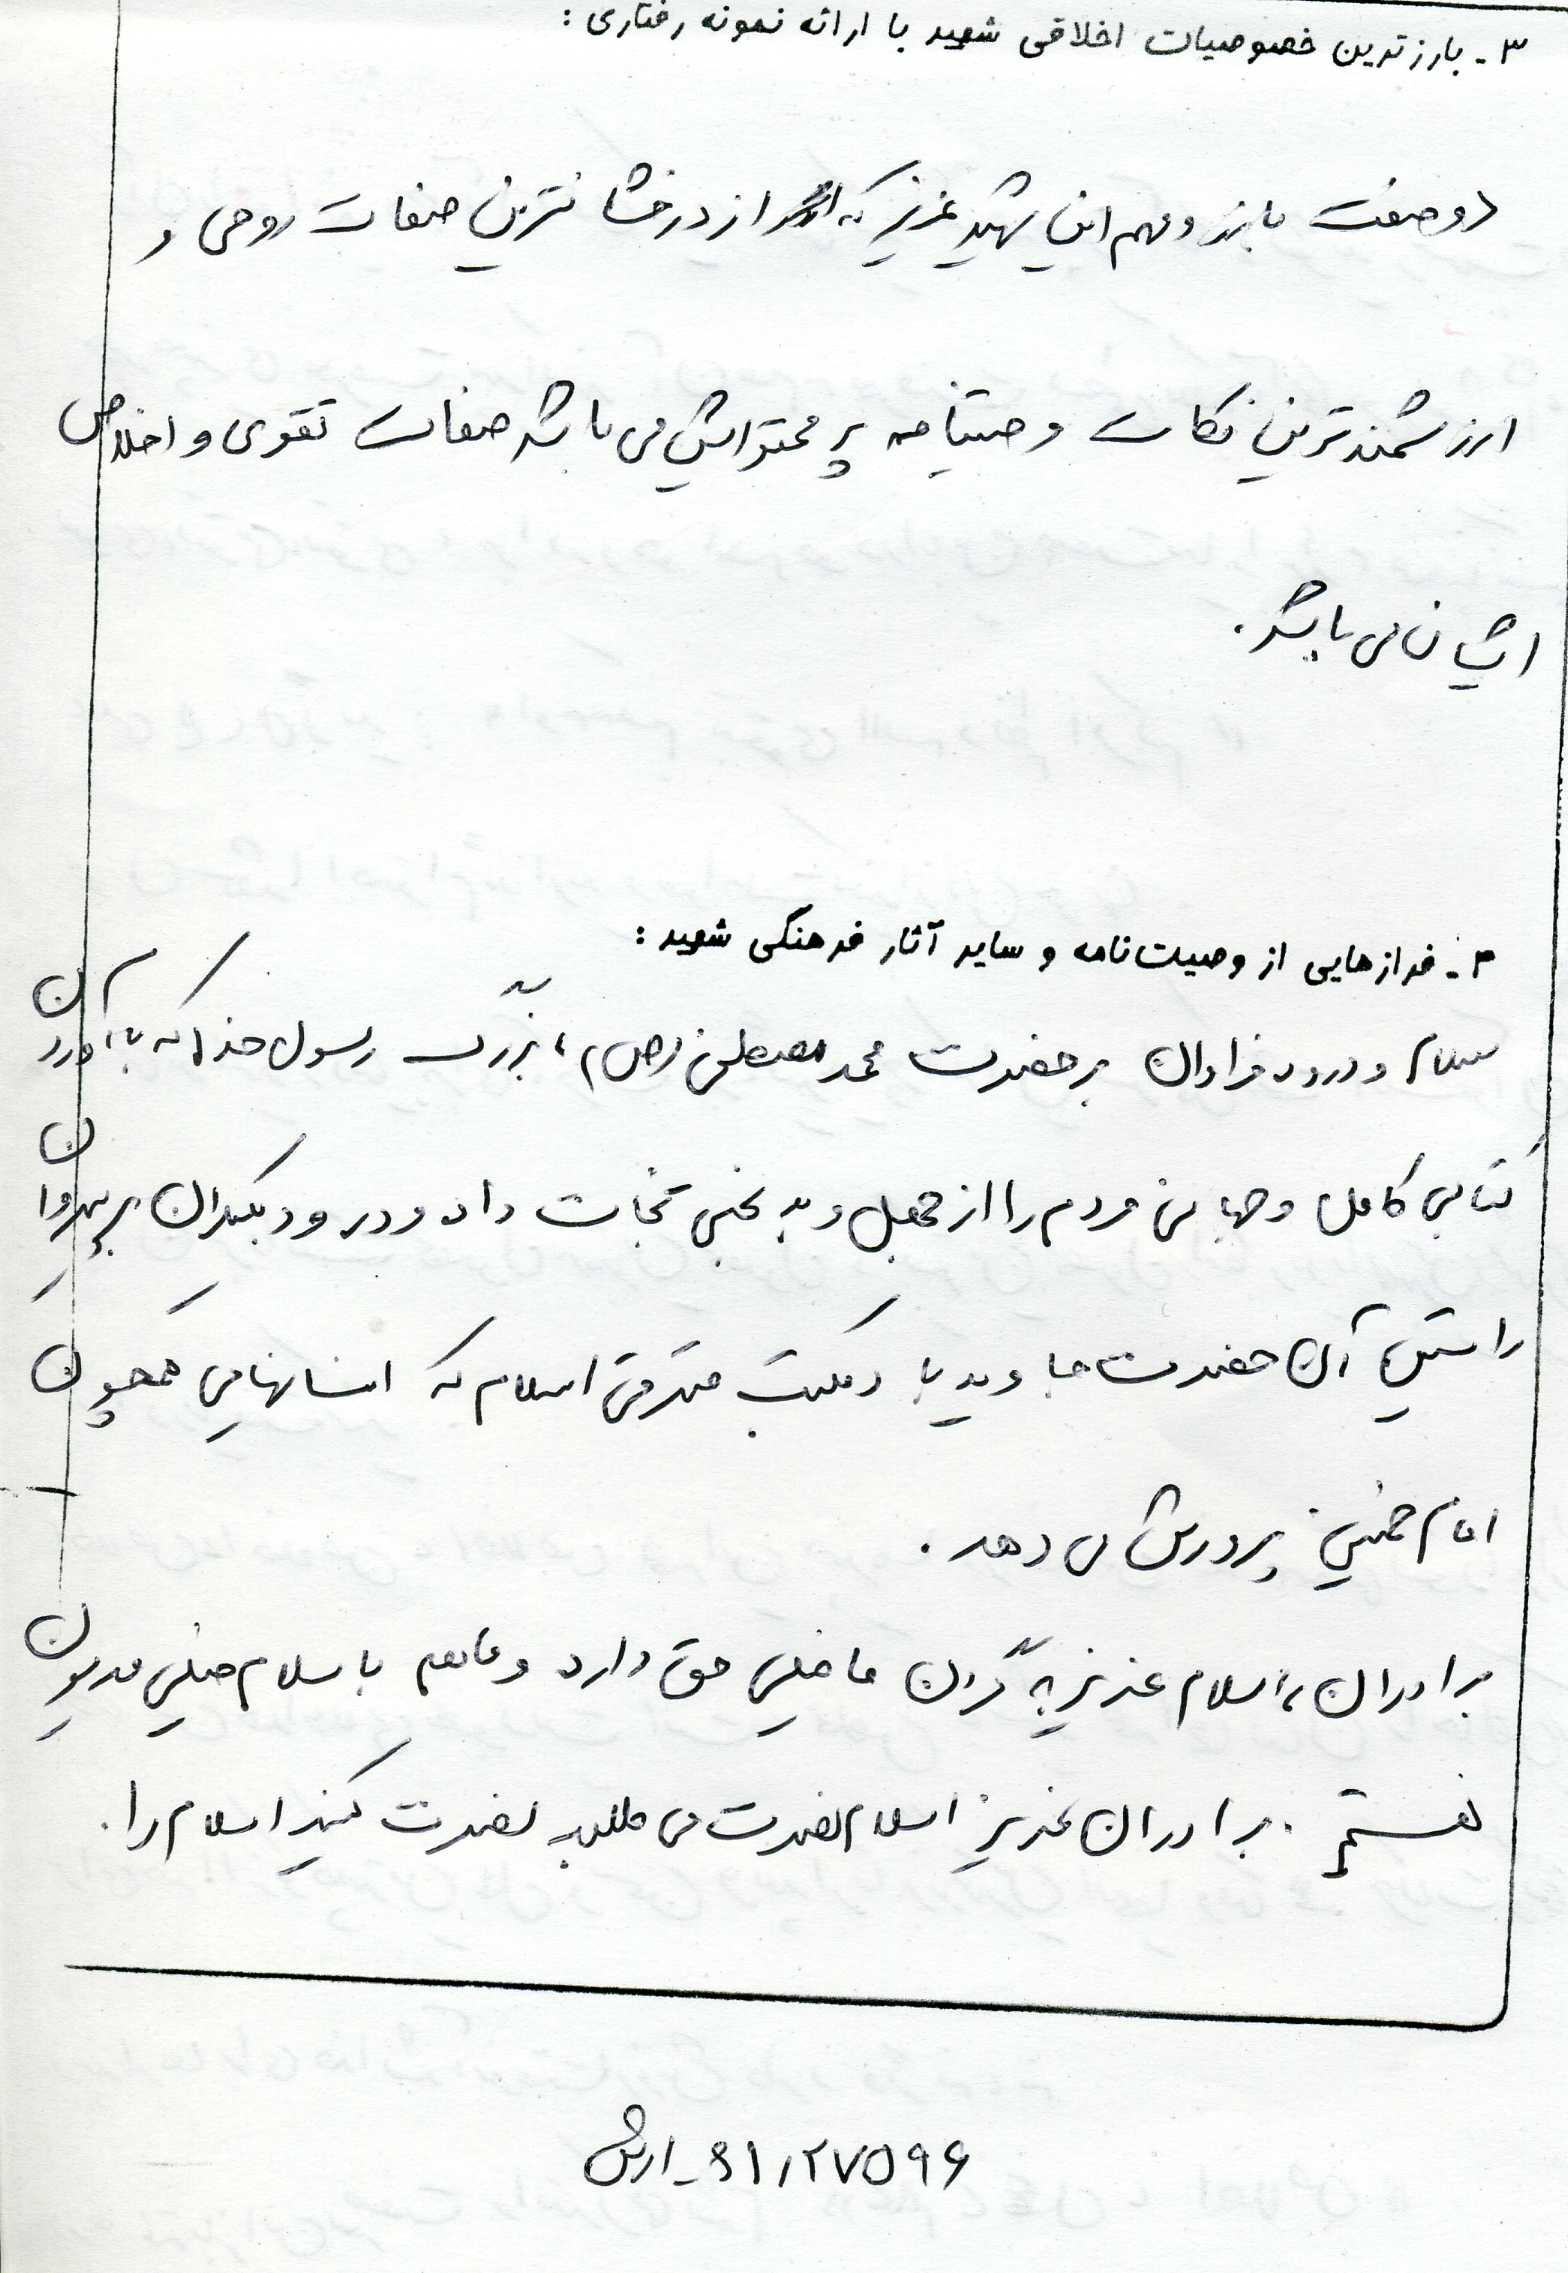 ۳ـ بارزترین خصوصیات اخلاقی شهید با ارائه نمونه رفتاری :
دو صفت بارز و مهم این شهید عزیز که از درخشانترین صفات روحی و
ارزشمندترین نکات وصیتنامه پر محتوایش می باشد صفات تقوی و اخلاص
ایشان می باشد .
۴ـ فرازهایی از وصیت‌نامه و سایر آثار فرهنگی شهید :
سلام و درود فراوان بر حضرت محمد مصطفی (ص) ، بزرگ رسول خدا که با آوردن
کتابی کامل و جهانی مردم را از جهل و بدبختی نجات داد و درود بیکران بر پیروان
راستین آن حضرت جاوید باد مکتب مترقی اسلام که انسانهایی همچون
امام خمینی پرورش می دهد .
برادران ، اسلام عزیز به گردن ما خیلی حق دارد و ما هم با سلام خیلی مدیون
هستیم . برادران عزیز اسلام نصرت می طلبد نصرت کنید اسلام را .
۶۱/۲۷۵۹۶ ـ ارتش